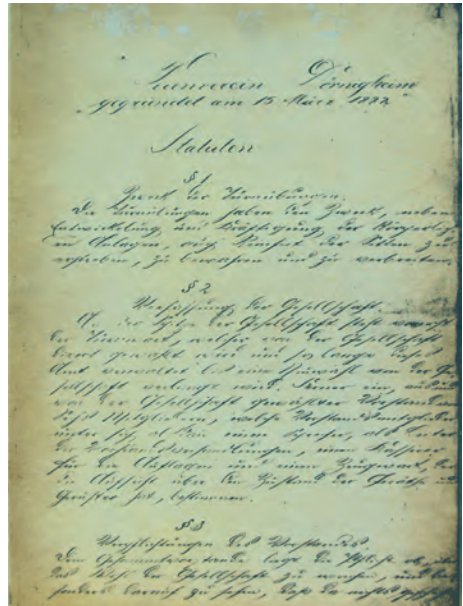 1
Turnverein Dörnigheim
gegründet am 15 März 1882
Statuten
§ 1
Zweck der Turnübungen.
Die Turnübungen haben den Zweck, neben
Entwickelung und Kräftigung der körperlich
en Anlagen, auch Reinheit der Sitten zu
erstreben, zu bewahren und zu verbreiten.
§ 2
Verfassung der Gesellschaft.
An der Spitze der Gesellschaft steht
der Turnwart, welcher von der Gesellschaft
gewählt wird und so lange dieses
Amt verwaltet bis eine Neuwahl von der Ge
sellschaft verlangt wird. Ferner ein
von der Gesellschaft gewählter Vorstand von
Mitgliedern, welche Vorstandsmitglieder
unter sich einen Schreiber, als Leiter
der einen Kassierer
für die Auflagen und einen Zeugwart, der
die Aufsicht über den Zustand der Geräthe und
Gerüster hat, bestimmen.
§ 3
Verpflichtungen des Vorstandes.
Dem Gesammtvorstande liegt die Pflicht ob, über
das Wohl der Gesellschaft zu wachen, und be
sonders darauf zu sehen, daß